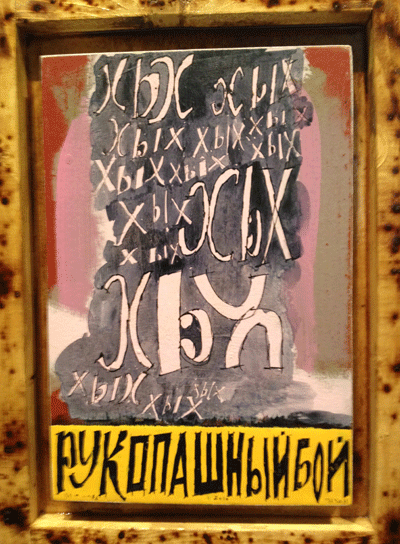 ХЫХ ХЫХ
ХЫХ ХЫХ ХЫХ
ХЫХ ХЫХ ХЫХ
ХЫХ ХЫХ
ХЫХ
ХЫХ
ХЫХ ХЫХ ХЫХ
РУКОПАШНЫЙ БОЙ